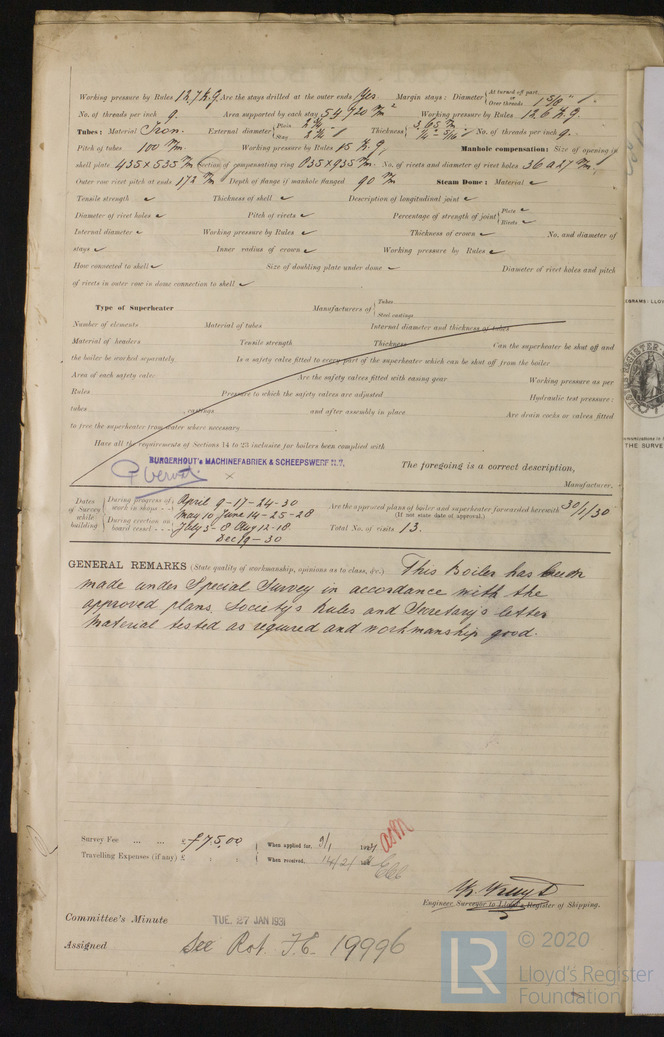 Working pressure by Rules 12.7 K.G. Are the stays drilled at the outer ends Yes Margin stays: Diameter { At turned off part, or Over threads 1 5/8"
No. of threads per inch 9. Area supported by each stay 54920 m/m² Working pressure by Rules 12.6 K.G.
Tubes: Material Iron. External diameter { Plain Stay Thickness { 3.65 m/m No. of threads per inch 9.
Pitch of tubes 100 m/m. Working pressure by Rules 15 K.G. Manhole compensation: Size of opening in
shell plate 435 x 535 m/m Section of compensating ring 935 x 935 m/m. No. of rivets and diameter of rivet holes 36 a 27 m/m.
Outer row rivet pitch at ends 172 m/m Depth of flange if manhole flanged 90 m/m Steam Dome: Material ✓
Tensile strength ✓ Thickness of shell ✓ Description of longitudinal joint ✓
Diameter of rivet holes ✓ Pitch of rivets ✓ Percentage of strength of joint { Plate ✓ Rivets ✓
Internal diameter ✓ Working pressure by Rules ✓ Thickness of crown ✓ No. and diameter of
stays ✓ Inner radius of crown ✓ Working pressure by Rules ✓
How connected to shell ✓ Size of doubling plate under dome ✓ Diameter of rivet holes and pitch
of rivets in outer row in dome connection to shell ✓
Type of Superheater Manufacturers of { Tubes Steel castings
Number of elements Material of tubes Internal diameter and thickness of tubes
Material of headers Tensile strength Thickness Can the superheater be shut off and
the boiler be worked separately Is a safety valve fitted to every part of the superheater which can be shut off from the boiler
Area of each safety valve Are the safety valves fitted with easing gear Working pressure as per
Rules Pressure to which the safety valves are adjusted Hydraulic test pressure:
tubes castings and after assembly in place Are drain cocks or valves fitted
to free the superheater from water where necessary
Have all the requirements of Sections 14 to 23 inclusive for boilers been complied with
BURGERHOUT's MACHINEFABRIEK & SCHEEPSWERF N.V. The foregoing is a correct description,
Manufacturer.
Dates of Survey while building { During progress of work in shops - - April 9-17-24-30 May 10 June 14-25-28
During erection on board vessel - - - July 3-8 Aug 12-18 Dec 19-30
Are the approved plans of boiler and superheater forwarded herewith 30/1/30
(If not state date of approval.)
Total No. of visits 13.
GENERAL REMARKS (State quality of workmanship, opinions as to class, &c.) This Boiler has been
made under Special Survey in accordance with the
approved plans, Society's Rules and Secretary's letter
Material tested as required and workmanship good.
Survey Fee ... ... £ 75,00 When applied for, 9/1 1931
Travelling Expenses (if any) £ : : When received, 14/2/
Engineer Surveyor to Lloyd's Register of Shipping.
Committee's Minute TUE. 27 JAN 1931
Assigned See Rot. F.E. 19996
LR © 2020
Lloyd's Register
Foundation
THE SURVE